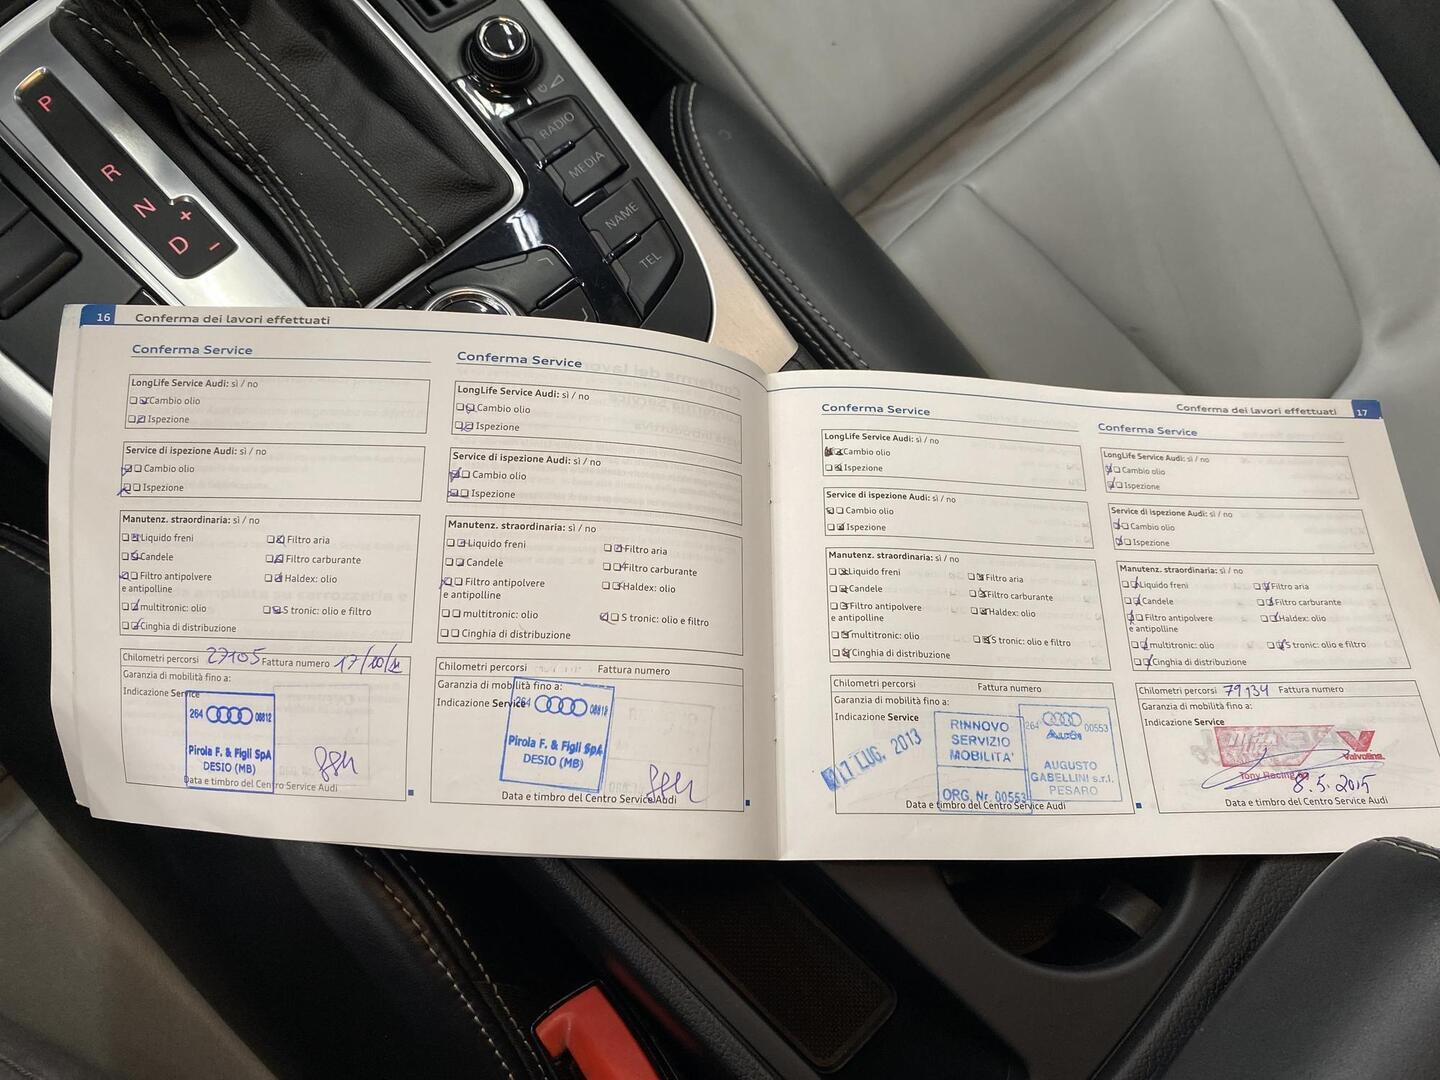 P
R
N
D
+
-
RADIO
MEDIA
NAME
TEL
16 Conferma dei lavori effettuati
Conferma Service
LongLife Service Audi: sì / no
Cambio olio
Ispezione
Service di ispezione Audi: sì / no
Cambio olio
Ispezione
Manutenz. straordinaria: sì / no
Liquido freni Filtro aria
Candele Filtro carburante
Filtro antipolvere Haldex: olio
e antipolline
multitronic: olio S tronic: olio e filtro
Cinghia di distribuzione
Chilometri percorsi 27105 Fattura numero 17/10/
Garanzia di mobilità fino a:
Indicazione Service
264 08812
Pirola F. & Figli SpA
DESIO (MB)
Data e timbro del Centro Service Audi
Conferma Service
LongLife Service Audi: sì / no
Cambio olio
Ispezione
Service di ispezione Audi: sì / no
Cambio olio
Ispezione
Manutenz. straordinaria: sì / no
Liquido freni Filtro aria
Candele Filtro carburante
Filtro antipolvere Haldex: olio
e antipolline
multitronic: olio S tronic: olio e filtro
Cinghia di distribuzione
Chilometri percorsi Fattura numero
Garanzia di mobilità fino a:
Indicazione Service
264 08812
Pirola F. & Figli SpA
DESIO (MB)
Data e timbro del Centro Service Audi
Conferma dei lavori effettuati 17
Conferma Service
LongLife Service Audi: sì / no
Cambio olio
Ispezione
Service di ispezione Audi: sì / no
Cambio olio
Ispezione
Manutenz. straordinaria: sì / no
Liquido freni Filtro aria
Candele Filtro carburante
Filtro antipolvere Haldex: olio
e antipolline
multitronic: olio S tronic: olio e filtro
Cinghia di distribuzione
Chilometri percorsi Fattura numero
Garanzia di mobilità fino a:
Indicazione Service
17 LUG. 2013
RINNOVO
SERVIZIO
MOBILITA'
ORG. Nr. 00553
264 00553
Audi
AUGUSTO
GABELLINI s.r.l.
PESARO
Data e timbro del Centro Service Audi
Conferma Service
LongLife Service Audi: sì / no
Cambio olio
Ispezione
Service di ispezione Audi: sì / no
Cambio olio
Ispezione
Manutenz. straordinaria: sì / no
Liquido freni Filtro aria
Candele Filtro carburante
Filtro antipolvere Haldex: olio
e antipolline
multitronic: olio S tronic: olio e filtro
Cinghia di distribuzione
Chilometri percorsi 79134 Fattura numero
Garanzia di mobilità fino a:
Indicazione Service
Valvoline
Tony Racing
8.5.2015
Data e timbro del Centro Service Audi